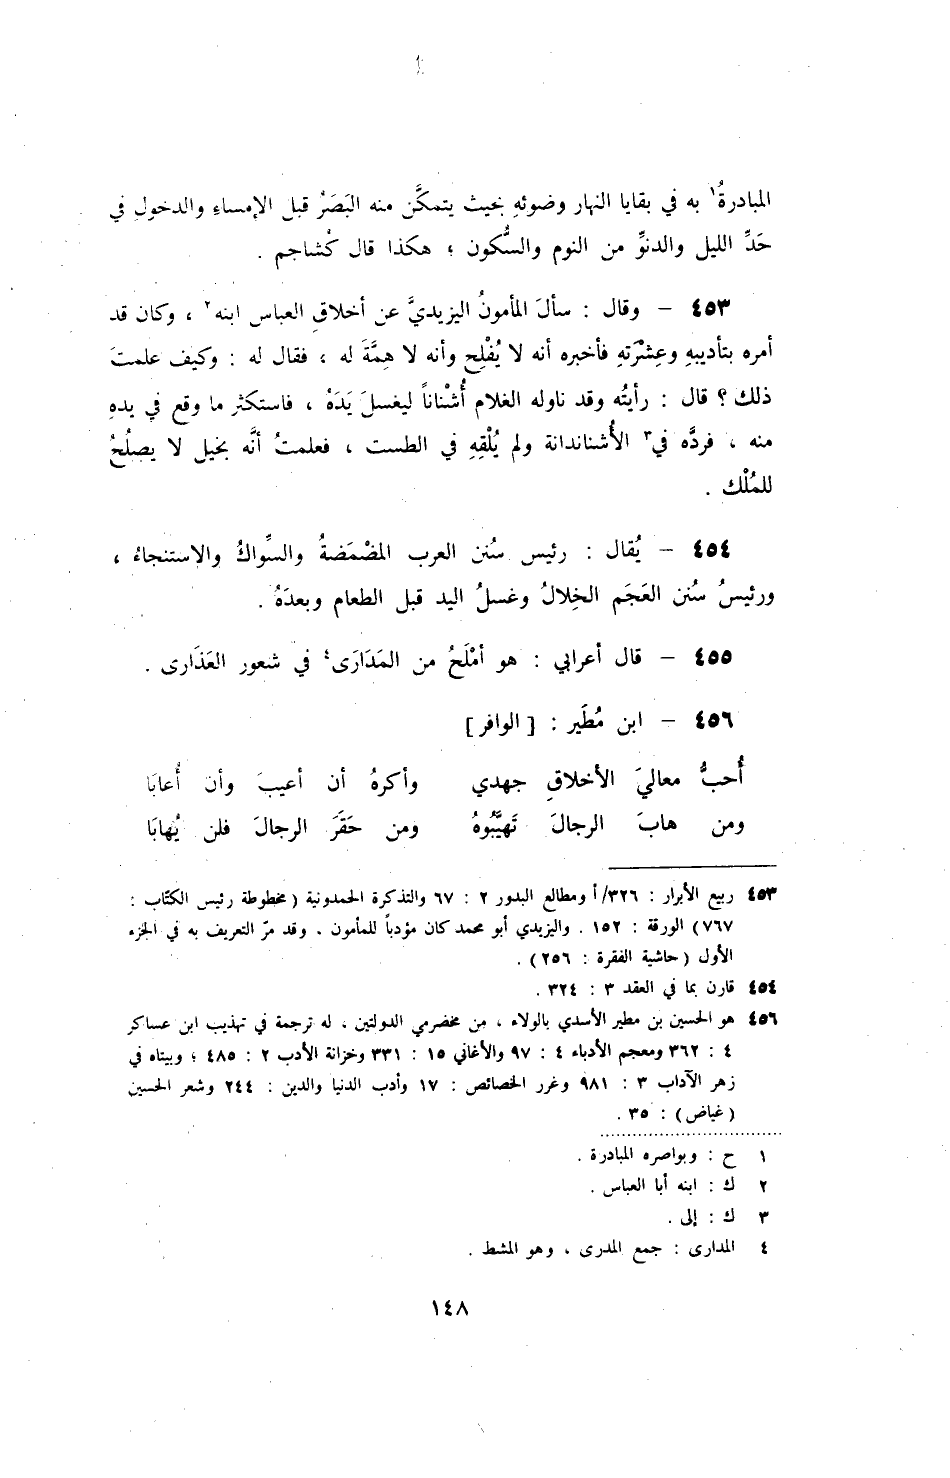 المبادرةُ١ به في بقايا النهار وضوئهِ بحيث يتمكَّن منه البَصَرُ قبل الإمساءِ والدخولِ في
حَدِّ الليل والدنوِّ من النوم والسُّكون ؛ هكذا قال كُشاجم .
٤٥٣ – وقال : سألَ المأمونُ اليزيديَّ عن أخلاقِ العباس ابنه٢ ، وكان قد
أمره بتأديبهِ وعِشْرَتهِ فأخبره أنه لا يُفْلِح وأنه لا هِمَّةَ له ، فقال له : وكيف علمتَ
ذلك ؟ قال : رأيتُه وقد ناوله الغلام أُشْناناً ليغسلَ يَدَهُ ، فاستكثر ما وقع في يدهِ
منه ، فردَّه في٣ الأُشناندانة ولم يُلْقِهِ في الطست ، فعلمتُ أنَّه بخيل لا يصلُحُ
للمُلْك .
٤٥٤ – يُقال : رئيس سُنن العرب المضْمَضةُ والسِّواكُ والاستنجاءُ ،
ورئيسُ سُنن العَجَم الخِلالُ وغسلُ اليد قبل الطعام وبعدَهُ .
٤٥٥ – قال أعرابي : هو أمْلَحُ من المَدَارَى٤ في شعور العَذَارى .
٤٥٦ – ابن مُطَير : [ الوافر ]
أُحبُّ معاليَ الأخلاقِ جهدي وأكرهُ أن أعيبَ وأن أُعابَا
ومن هابَ الرجالَ تَهَيَّبُوهُ ومن حَقَرَ الرجالَ فلن يُهابَا
٤٥٣ ربيع الأبرار : ٣٢٦/أ ومطالع البدور ٢ : ٦٧ والتذكرة الحمدونية ( مخطوطة رئيس الكتّاب :
٧٦٧) الورقة : ١٥٢ . واليزيدي أبو محمد كان مؤدباً للمأمون . وقد مرّ التعريف به في الجزء
الأول (حاشية الفقرة : ٢٥٦) .
٤٥٤ قارن بما في العقد ٣ : ٣٢٤ .
٤٥٦ هو الحسين بن مطير الأسدي بالولاء ، من مخضرمي الدولتين ، له ترجمة في تهذيب ابن عساكر
٤ : ٣٦٢ ومعجم الأدباء ٤ : ٩٧ والأغاني ١٥ : ٣٣١ وخزانة الأدب ٢ : ٤٨٥ ؛ وبيتاه في
زهر الآداب ٣ : ٩٨١ وغرر الخصائص : ١٧ وأدب الدنيا والدين : ٢٤٤ وشعر الحسين
(غياض) : ٣٥ .
١ ح : وبواصره المبادرة .
٢ ك : ابنه أبا العباس .
٣ ك : إلى .
٤ المدارى : جمع المدرى ، وهو المشط .
١٤٨